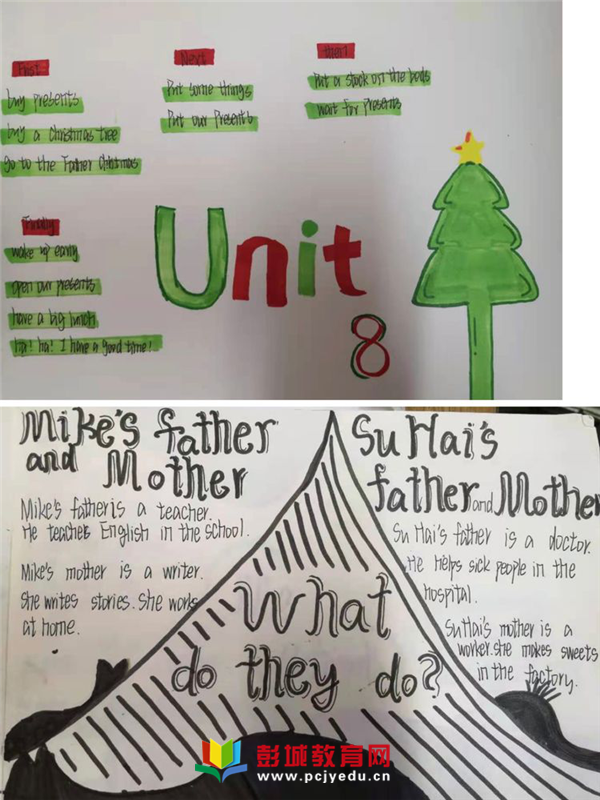 First
buy presents
buy a Christmas tree
go to the Father Chhistmas
Next
Put some things
Put our Presents
then
Put a stock on the beds
wait for Presents
Finally
wake up early
open our presents
have a big lunch
ha! ha! I have a good time!
Unit
8
Mike's father
and Mother
Mike's father is a teacher.
He teaches English in the school.
Mike's mother is a writer.
She writes stories. She works
at home.
Su Hai's
father and Mother
Su Hai's father is a doctor.
He helps sick people in the
hospital.
SuHai's mother is a
worker. she makes sweets
in the factory.
What
do they do?
彭城教育网
www.pcjyedu.cn